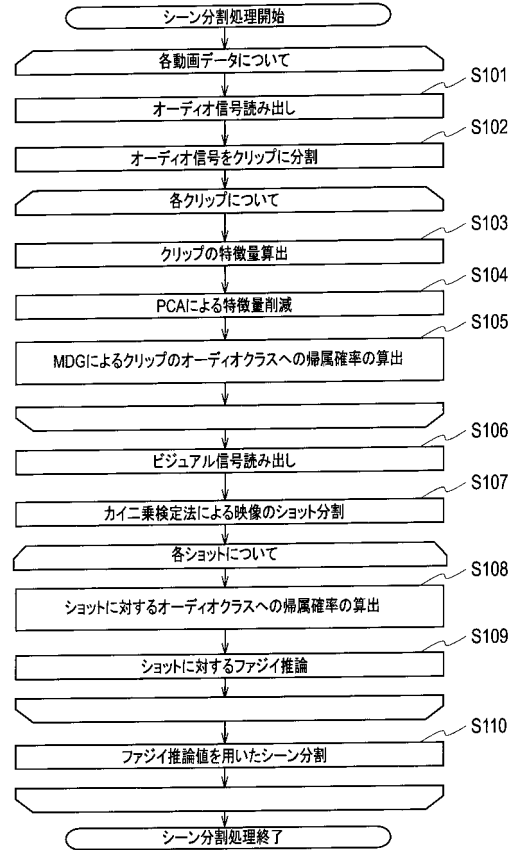 シーン分割処理開始
各動画データについて
S101
オーディオ信号読み出し
S102
オーディオ信号をクリップに分割
各クリップについて
S103
クリップの特徴量算出
S104
PCAによる特徴量削減
S105
MDGによるクリップのオーディオクラスへの帰属確率の算出
S106
ビジュアル信号読み出し
S107
カイ二乗検定法による映像のショット分割
各ショットについて
S108
ショットに対するオーディオクラスへの帰属確率の算出
S109
ショットに対するファジイ推論
S110
ファジイ推論値を用いたシーン分割
シーン分割処理終了